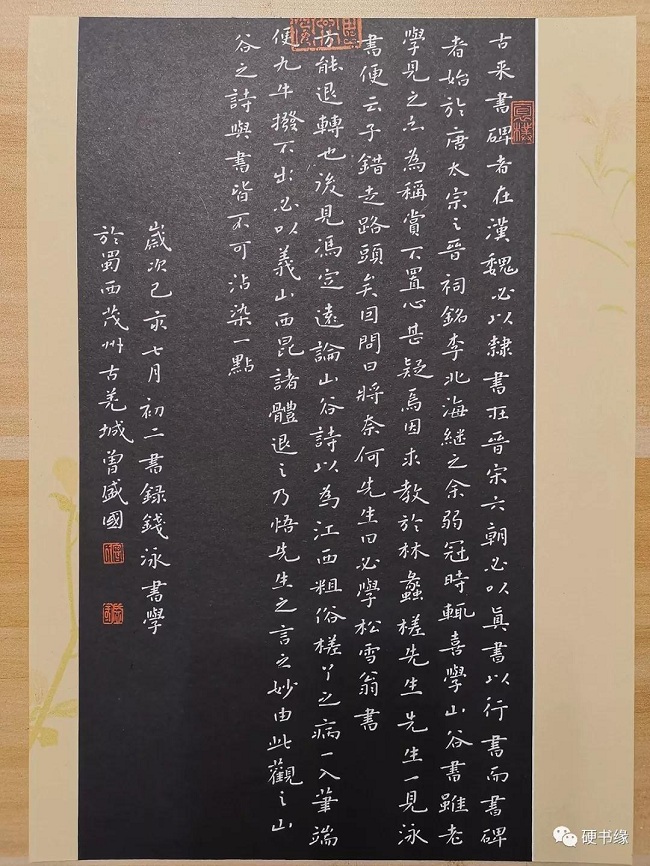 古来書碑者在漢魏必以隸書在晉宋六朝必以真書以行書而書碑
者始於唐太宗之晉祠銘李北海繼之余弱冠時輒喜學山谷書雖老
學見之亦為稱賞不置心甚疑焉因求教於林蠡槎先生先生一見泳
書便云子錯走路頭矣因問曰將奈何先生曰必學松雪翁書
方能退轉也後見馮定遠論山谷詩以為江西粗俗槎丫之病一入筆端
便九牛撥不出必以義山西昆諸體退之乃悟先生之言之妙由此觀之山
谷之詩與書皆不可沾染一點
歲次己亥七月初二書録錢泳書學
於蜀西茂州古羌城曾盛國
硬书缘